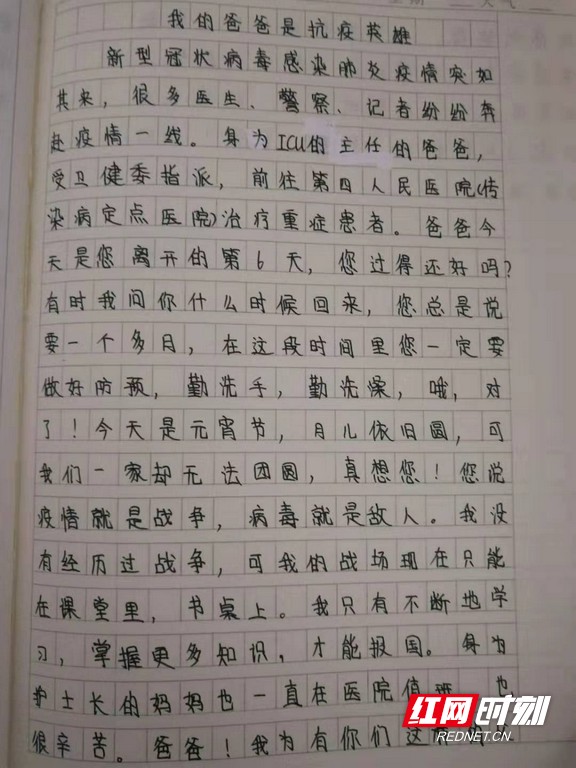 我的爸爸是抗疫英雄
新型冠状病毒感染肺炎疫情突如
其来，很多医生、警察、记者纷纷奔
赴疫情一线。身为ICU的主任的爸爸，
受卫健委指派，前往第四人民医院(传
染病定点医院)治疗重症患者。爸爸今
天是您离开的第6天，您过得还好吗？
有时我问你什么时候回来，您总是说
要一个多月，在这段时间里您一定要
做好防预，勤洗手，勤洗澡，哦，对
了！今天是元宵节，月儿依旧圆，可
我们一家却无法团圆，真想您！您说
疫情就是战争，病毒就是敌人。我没
有经历过战争，可我的战场现在只能
在课堂里，书桌上。我只有不断地学
习，掌握更多知识，才能报国。身为
护士长的妈妈也一直在医院值班，也
很辛苦。爸爸！我为有你们这
红网时刻
REDNET.CN